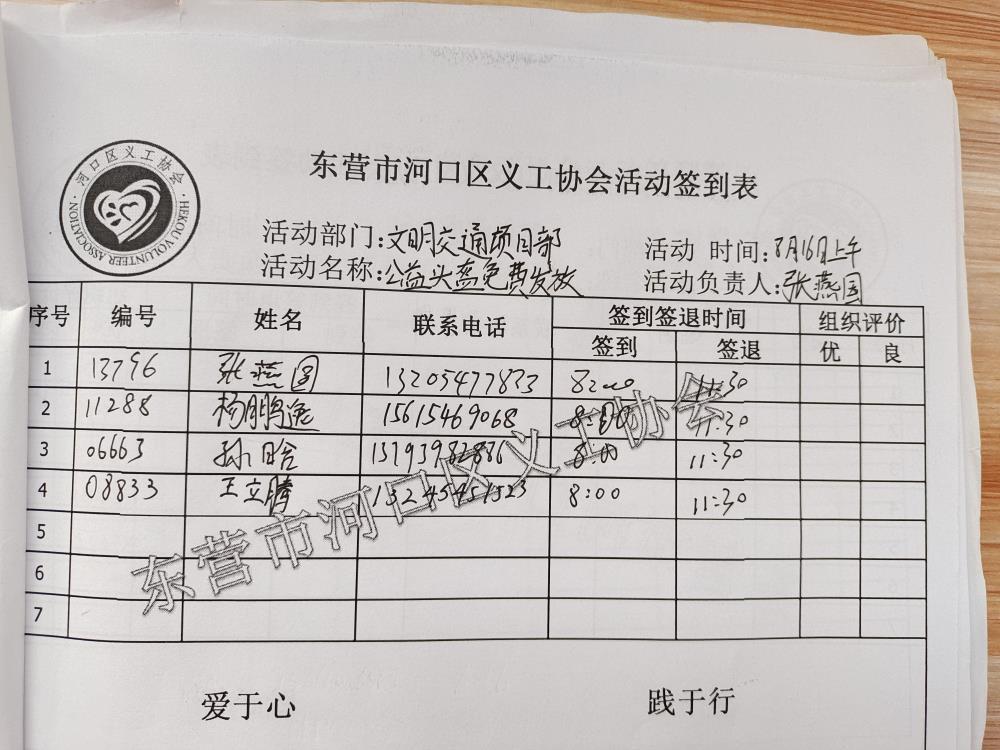 东营市河口区义工协会活动签到表
河口区义工协会
HEKOU VOLUNTEER ASSOCIATION
活动部门:文明交通项目部
活动 时间:8月16日上午
活动名称:公益头盔免费发放
活动负责人:张燕国
序号 编号 姓名 联系电话 签到签退时间 组织评价
签到 签退 优 良
1 13796 张燕国 13205477823 8:00 11:30
2 11288 杨鹏逸 15615469068 8:00 11:30
3 06663 孙晗 13793982886 8:00 11:30
4 08833 王立腾 8:00 11:30
5
6
7
东营市河口区义工协会
爱于心 践于行